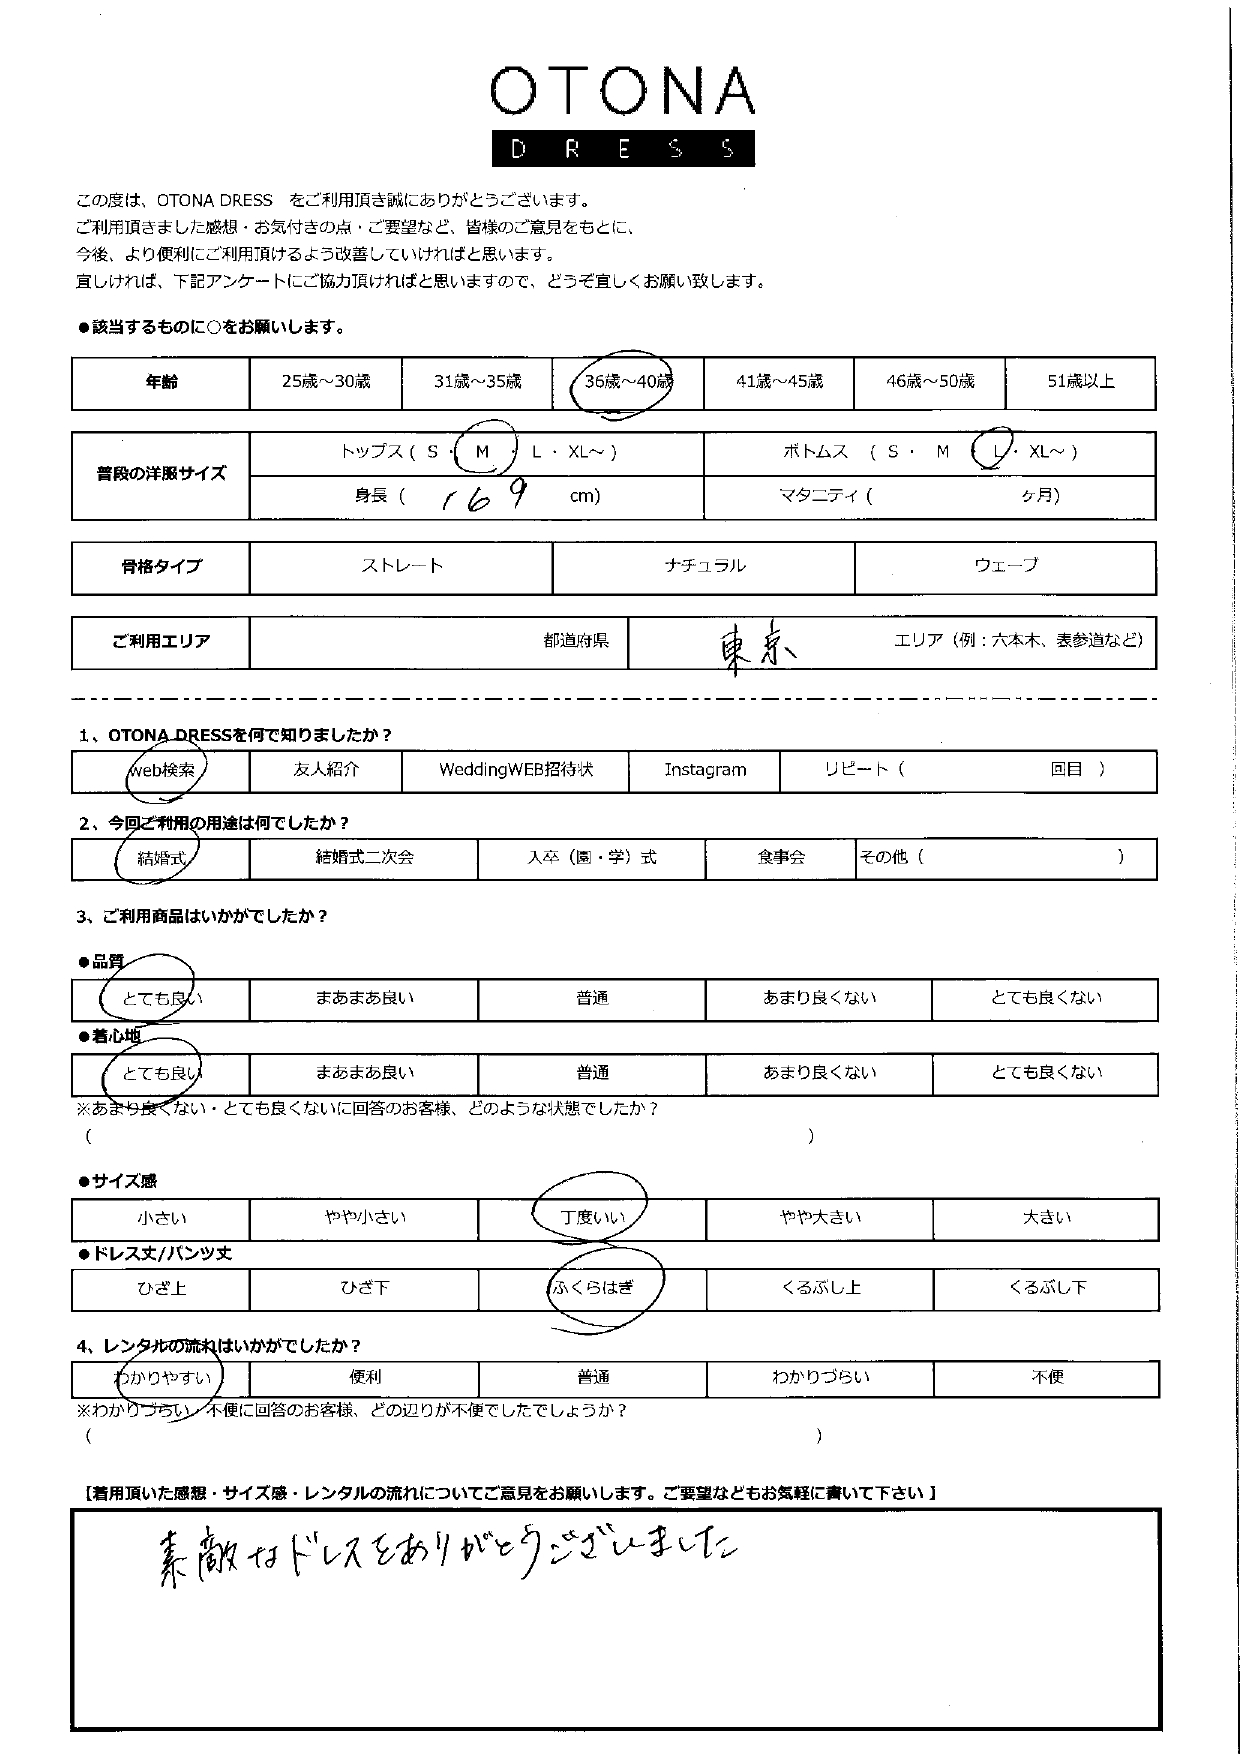 OTONA
DRESS
この度は、OTONA DRESS をご利用頂き誠にありがとうございます。
ご利用頂きました感想・お気付きの点・ご要望など、皆様のご意見をもとに、
今後、より便利にご利用頂けるよう改善していければと思います。
宜しければ、下記アンケートにご協力頂ければと思いますので、どうぞ宜しくお願い致します。
●該当するものに○をお願いします。
年齢 25歳～30歳 31歳～35歳 36歳～40歳 41歳～45歳 46歳～50歳 51歳以上
普段の洋服サイズ トップス ( S ・ M ・ L ・ XL～ ) ボトムス ( S ・ M ・ L ・ XL～ )
身長 ( 169 cm) マタニティ ( ヶ月)
骨格タイプ ストレート ナチュラル ウェーブ
ご利用エリア 都道府県 東京 エリア（例：六本木、表参道など）
1、OTONA DRESSを何で知りましたか？
web検索 友人紹介 WeddingWEB招待状 Instagram リピート（ 回目 ）
2、今回ご利用の用途は何でしたか？
結婚式 結婚式二次会 入卒（園・学）式 食事会 その他（ ）
3、ご利用商品はいかがでしたか？
●品質
とても良い まあまあ良い 普通 あまり良くない とても良くない
●着心地
とても良い まあまあ良い 普通 あまり良くない とても良くない
※あまり良くない・とても良くないに回答のお客様、どのような状態でしたか？
（ ）
●サイズ感
小さい やや小さい 丁度いい やや大きい 大きい
●ドレス丈/パンツ丈
ひざ上 ひざ下 ふくらはぎ くるぶし上 くるぶし下
4、レンタルの流れはいかがでしたか？
わかりやすい 便利 普通 わかりづらい 不便
※わかりづらい・不便に回答のお客様、どの辺りが不便でしたでしょうか？
（ ）
【着用頂いた感想・サイズ感・レンタルの流れについてご意見をお願いします。ご要望などもお気軽に書いて下さい 】
素敵なドレスをありがとうございました